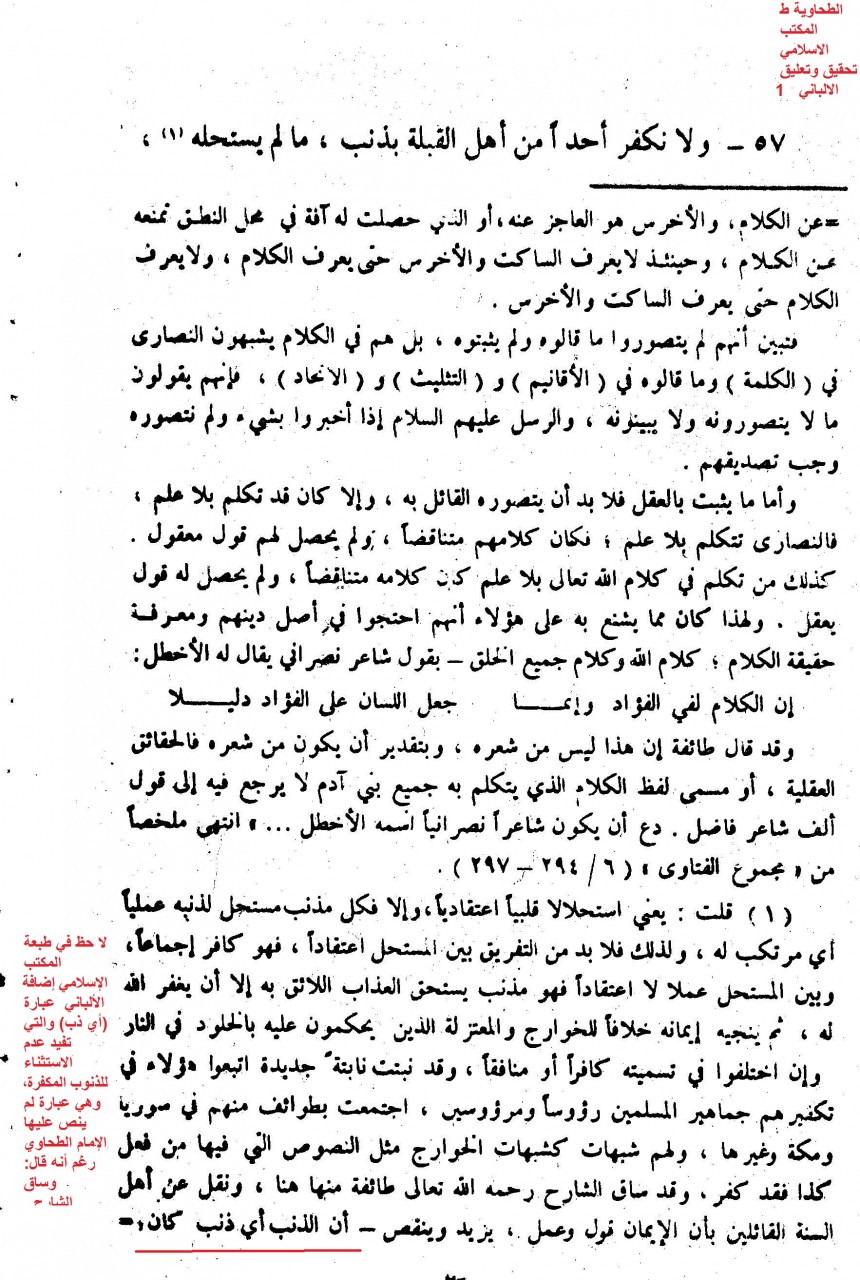 الطحاوية ط
المكتب
الاسلامي
تحقيق وتعليق
الالباني 1
٥٧ – ولا نكفر أحداً من أهل القبلة بذنب ، ما لم يستحله (١) ،
=عن الكلام، والأخرس هو العاجز عنه، أو الذي حصلت له آفة في محل النطق تمنعه
عن الكلام ، وحينئذ لا يعرف الساكت والأخرس حتى يعرف الكلام ، ولا يعرف
الكلام حتى يعرف الساكت والأخرس .
فتبين أنهم لم يتصوروا ما قالوه ولم يثبتوه ، بل هم في الكلام يشبهون النصارى
في ( الكلمة ) وما قالوه في ( الأقانيم ) و ( التثليث ) و ( الاتحاد ) ، فإنهم يقولون
ما لا يتصورونه ولا يبينونه ، والرسل عليهم السلام إذا أخبروا بشيء ولم نتصوره
وجب تصديقهم .
وأما ما يثبت بالعقل فلا بد أن يتصوره القائل به ، وإلا كان قد تكلم بلا علم ،
فالنصارى تتكلم بلا علم ؛ فكان كلامهم متناقضاً ، ولم يحصل لهم قول معقول .
كذلك من تكلم في كلام الله تعالى بلا علم كان كلامه متناقضاً ، ولم يحصل له قول
يعقل . ولهذا كان مما يشنع به على هؤلاء أنهم احتجوا في أصل دينهم ومعرفة
حقيقة الكلام ؛ كلام الله وكلام جميع الخلق – بقول شاعر نصراني يقال له الأخطل :
إن الكلام لفي الفؤاد وإنمـــا جعل اللسان على الفؤاد دليـــلا
وقد قال طائفة إن هذا ليس من شعره ، وبتقدير أن يكون من شعره فالحقائق
العقلية ، أو مسمى لفظ الكلام الذي يتكلم به جميع بني آدم لا يرجع فيه إلى قول
ألف شاعر فاضل . دع أن يكون شاعراً نصرانياً اسمه الأخطل ... » انتهى ملخصاً
من « مجموع الفتاوى » ( ٦ / ٢٩٤ – ٢٩٧ ) .
(١) قلت : يعني استحلالا قلبياً اعتقادياً، وإلا فكل مذنب مستحل لذنبه عملياً
أي مرتكب له ، ولذلك فلا بد من التفريق بين المستحل اعتقاداً ، فهو كافر إجماعاً،
وبين المستحل عملا لا اعتقاداً فهو مذنب يستحق العذاب اللائق به إلا أن يغفر الله
له ، ثم ينجيه إيمانه خلافاً للخوارج والمعتزلة الذين يحكمون عليه بالخلود في النار
وإن اختلفوا في تسميته كافراً أو منافقاً ، وقد نبتت نابتة جديدة اتبعوا هؤلاء في
تكفيرهم جماهير المسلمين رؤوساً ومرؤوسين ، اجتمعت بطوائف منهم في سوريا
ومكة وغيرها ، ولهم شبهات كشبهات الخوارج مثل النصوص التي فيها من فعل
كذا فقد كفر ، وقد ساق الشارح رحمه الله تعالى طائفة منها هنا ، ونقل عن أهل
السنة القائلين بأن الإيمان قول وعمل ، يزيد وينقص – أن الذنب أي ذنب كان ،=
لاحظ في طبعة
المكتب
الإسلامي إضافة
الألباني عبارة
(أي ذب) والتي
تفيد عدم
الاستثناء
للذنوب المكفرة،
وهي عبارة لم
ينص عليها
الإمام الطحاوي
رغم أنه قال:
وساق